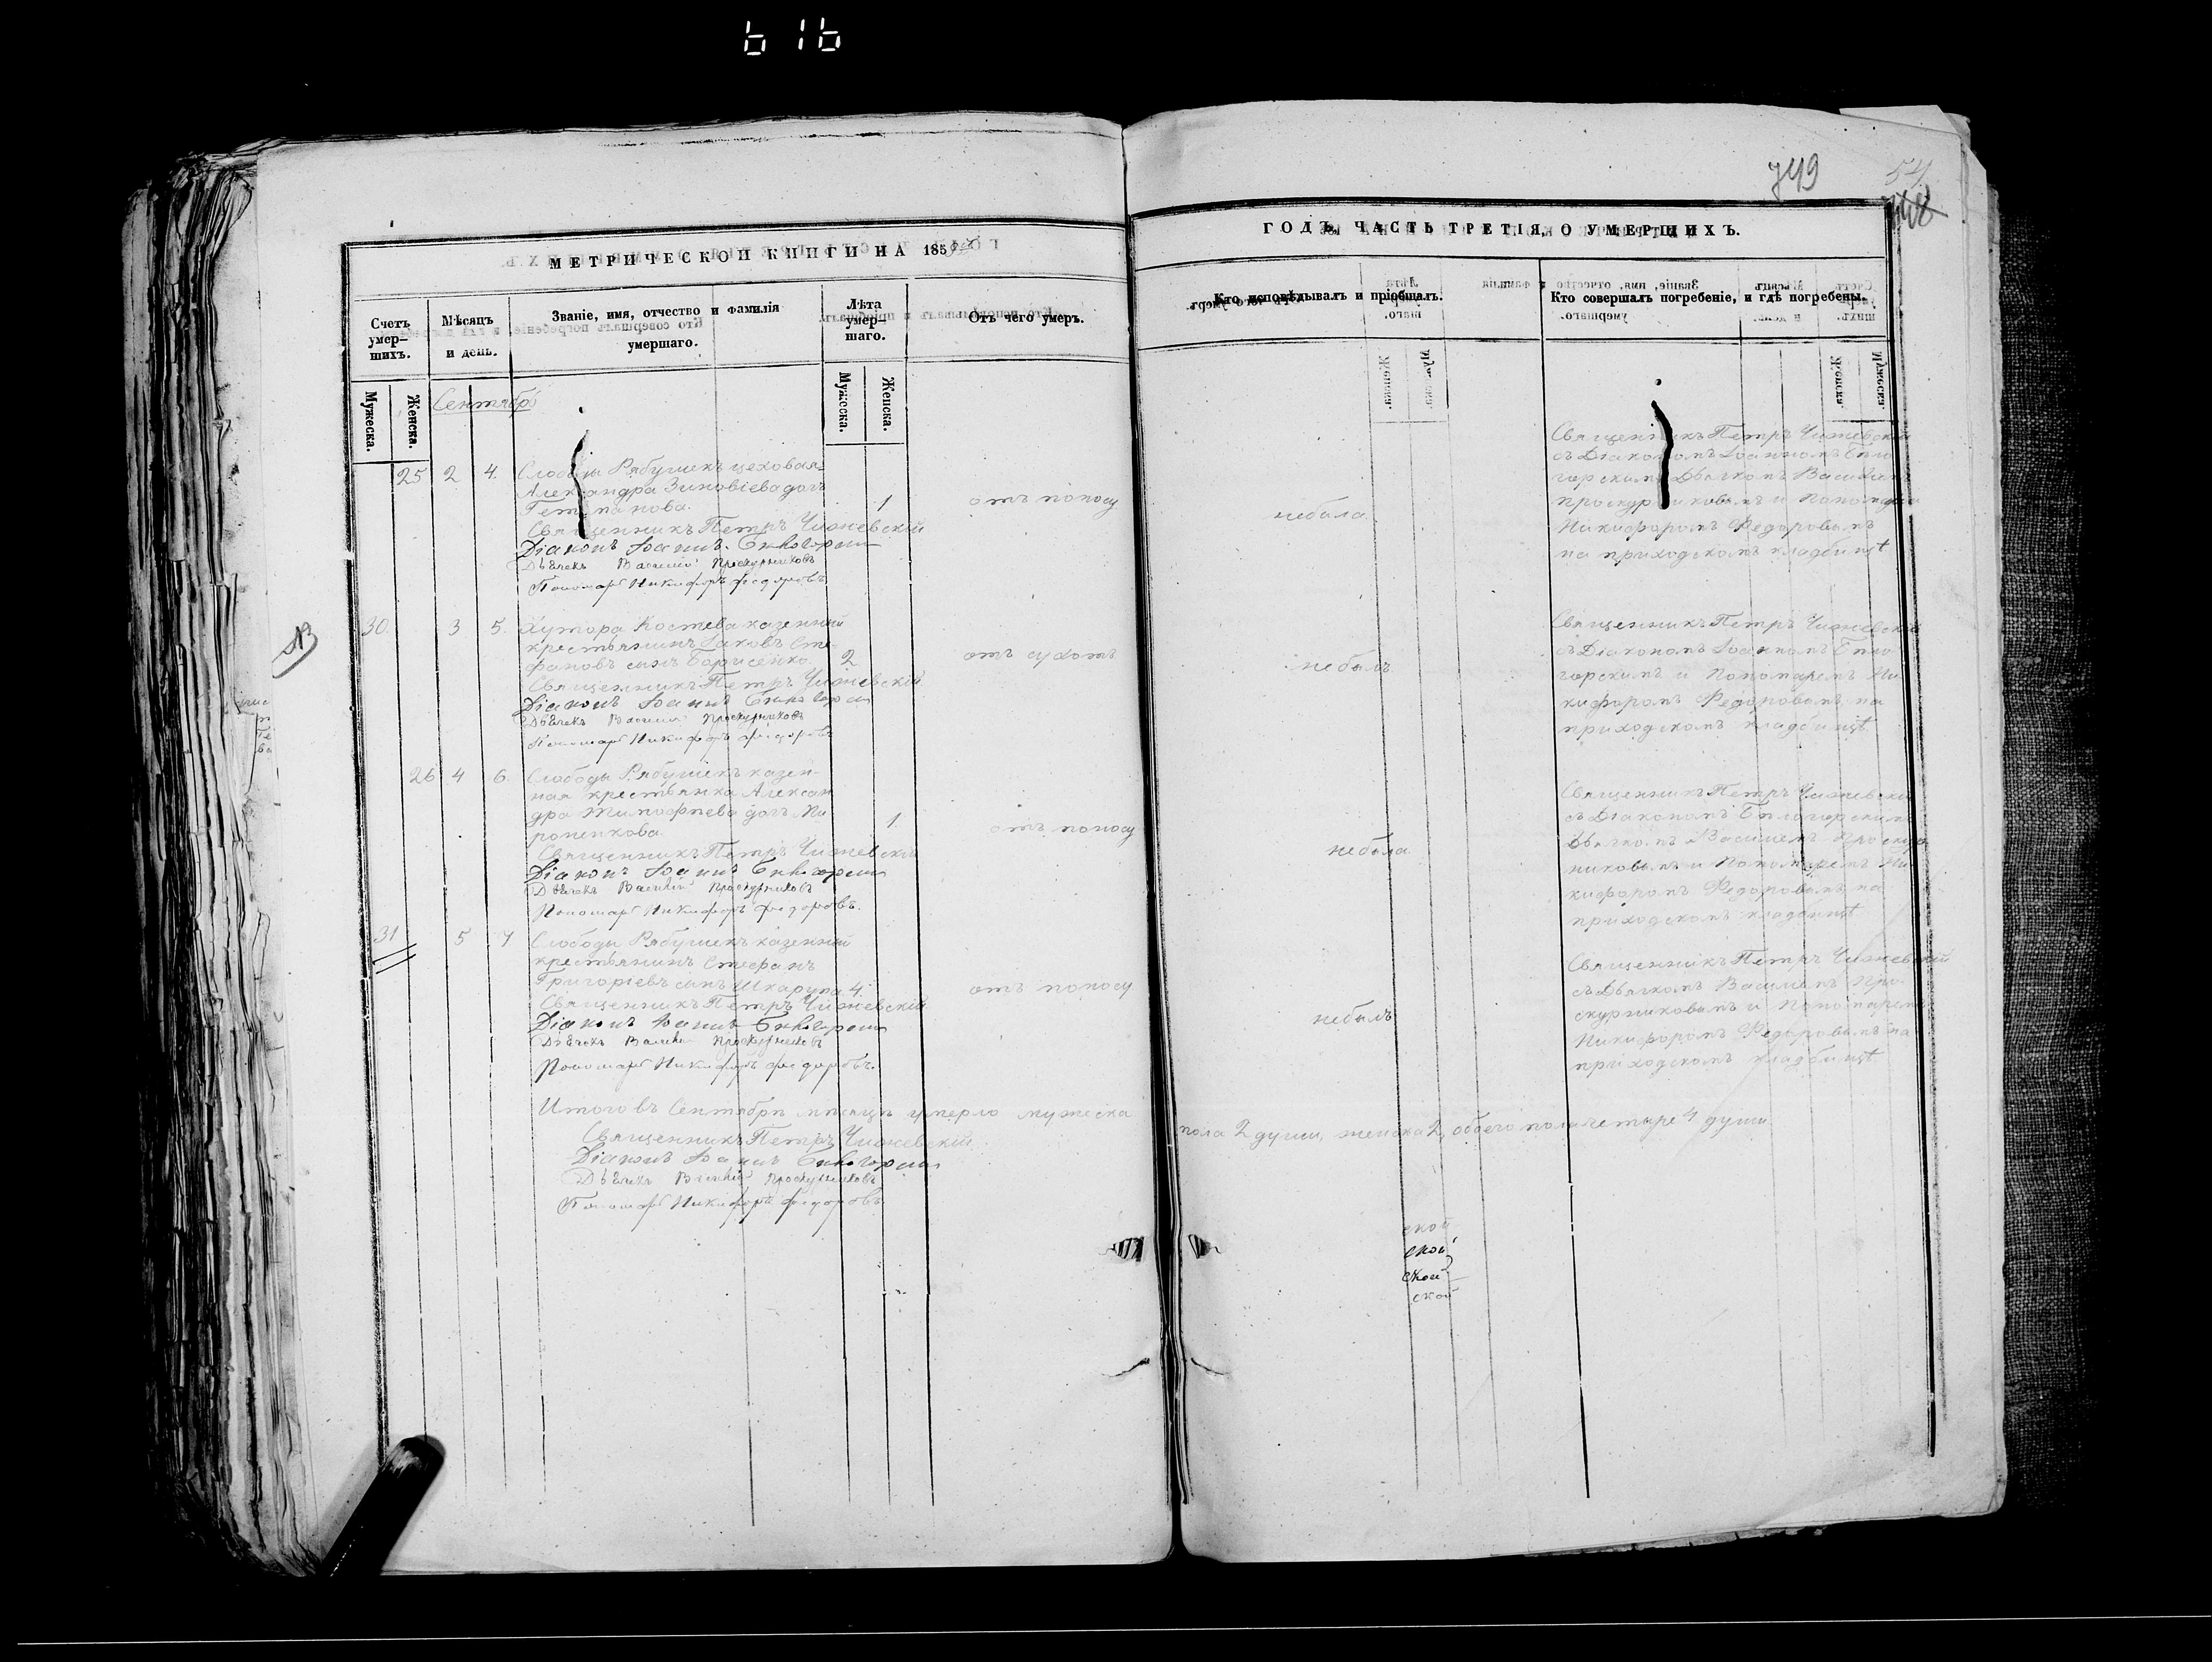 616
749
54
748
МЕТРИЧЕСКОЙ КНИГИ НА 185
ГОДЪ, ЧАСТЬ ТРЕТІЯ, О УМЕРШИХЪ.
Счетъ умер-шихъ.
Мѣсяцъ и день.
Званіе, имя, отчество и фамилія умершаго.
Лѣта умер-шаго.
Отъ чего умеръ.
Кто исповѣдывалъ и пріобщалъ.
Кто совершалъ погребеніе, и гдѣ погребены.
Мужеска.
Женска.
Мужеска.
Женска.
Сентябрь
25 2 4. Слободы Рябушекъ цеховая
Александра Зиновіева дочь
1 отъ поносу
небыла
Священникъ Петръ Чижевскій
Діаконъ Іоаннъ Белогорскій
Дьячекъ Василій Проскурниковъ
Пономарь Никифоръ Федоровъ
Священникъ Петръ Чижевскій
съ Діакономъ Іоанномъ Бело
горскимъ Дьячкомъ Василіемъ
Проскурниковымъ и Пономаремъ
Никифоромъ Федоровымъ
на приходскомъ кладбищѣ
30. 3 5. Хутора Костева казенный
крестьянинъ Іаковъ Сте
фановъ сынъ Борисенко. 2
отъ сухотъ
небылъ
Священникъ Петръ Чижевскій
Діаконъ Іоаннъ Белогорскій
Дьячекъ Василій Проскурниковъ
Пономарь Никифоръ Федоровъ
Священникъ Петръ Чижевскій
съ Діакономъ Іоанномъ Бело
горскимъ и Пономаремъ Ни
кифоромъ Федоровымъ на
приходскомъ кладбищѣ
26 4 6. Слободы Рябушекъ казен-
ная крестьянка Алексан
дра Тимофеева дочь Ми
роненкова
1. отъ поносу
небыла
Священникъ Петръ Чижевскій
Діаконъ Іоаннъ Белогорскій
Дьячекъ Василій Проскурниковъ
Пономарь Никифоръ Федоровъ.
Священникъ Петръ Чижевскій
съ Діакономъ Белогорскимъ
Дьячкомъ Василіемъ Проскур
никовымъ и Пономаремъ Ни
кифоромъ Федоровымъ на
приходскомъ кладбищѣ
31 5 7 Слободы Рябушекъ казенный
крестьянинъ Стефанъ
Григоріевъ сынъ Шкарупа 4.
отъ поносу
небылъ
Священникъ Петръ Чижевскій
Діаконъ Іоаннъ Белогорскій
Дьячекъ Василій Проскурниковъ
Пономарь Никифоръ Федоровъ.
Священникъ Петръ Чижевскій
съ Дьячкомъ Василіемъ Про
скурниковымъ и Пономаремъ
Никифоромъ Федоровымъ на
приходскомъ кладбищѣ
Итого въ Сентябрѣ мѣсяцѣ умерло мужеска
пола 2 души, женска 2, обоего пола четыре 4 души
Священникъ Петръ Чижевскій
Діаконъ Іоаннъ Белогорскій
Дьячекъ Василій Проскурниковъ
Пономарь Никифоръ Федоровъ
ской
ской
ской
ской